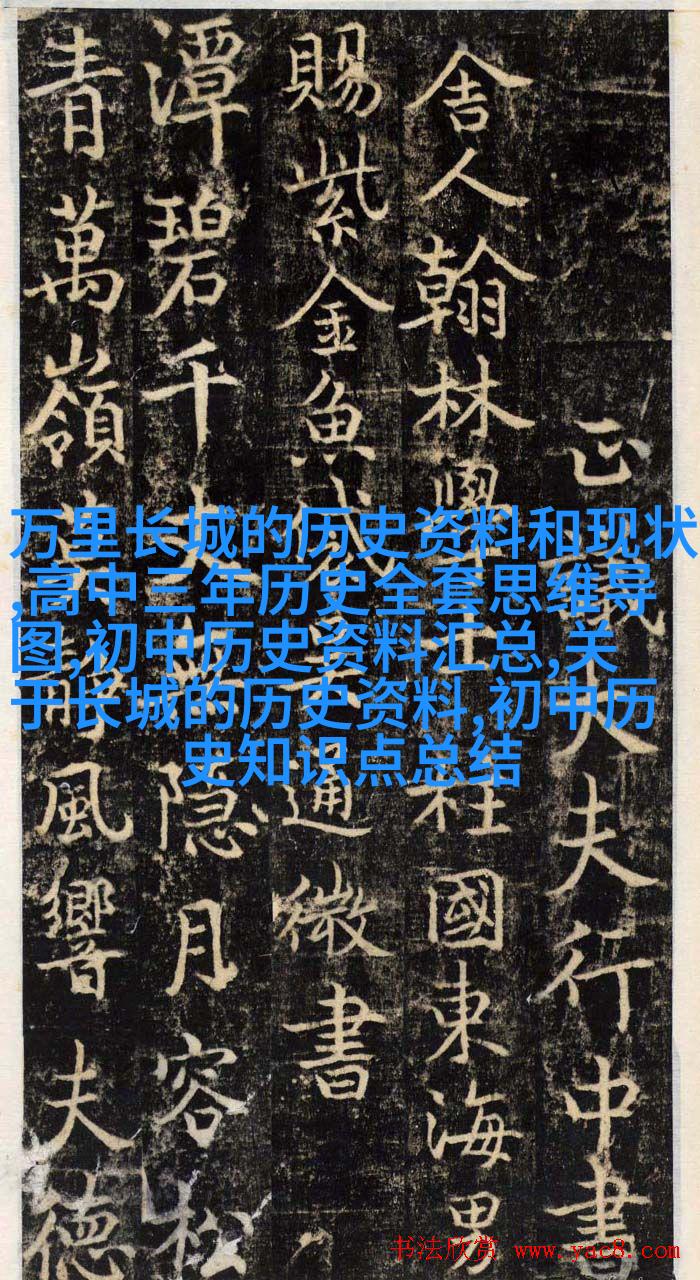 正議大夫行中書
舍人翰林學士上柱國東海男
賜紫金魚袋吳通微書
潭碧千丈隐月容松
青萬嶺風響夫德
万里长城的历史资料和现状
,高中三年历史全套思维导
图,初中历史资料汇总,关
于长城的历史资料,初中历
史知识点总结
书法欣赏 www.yac8.com